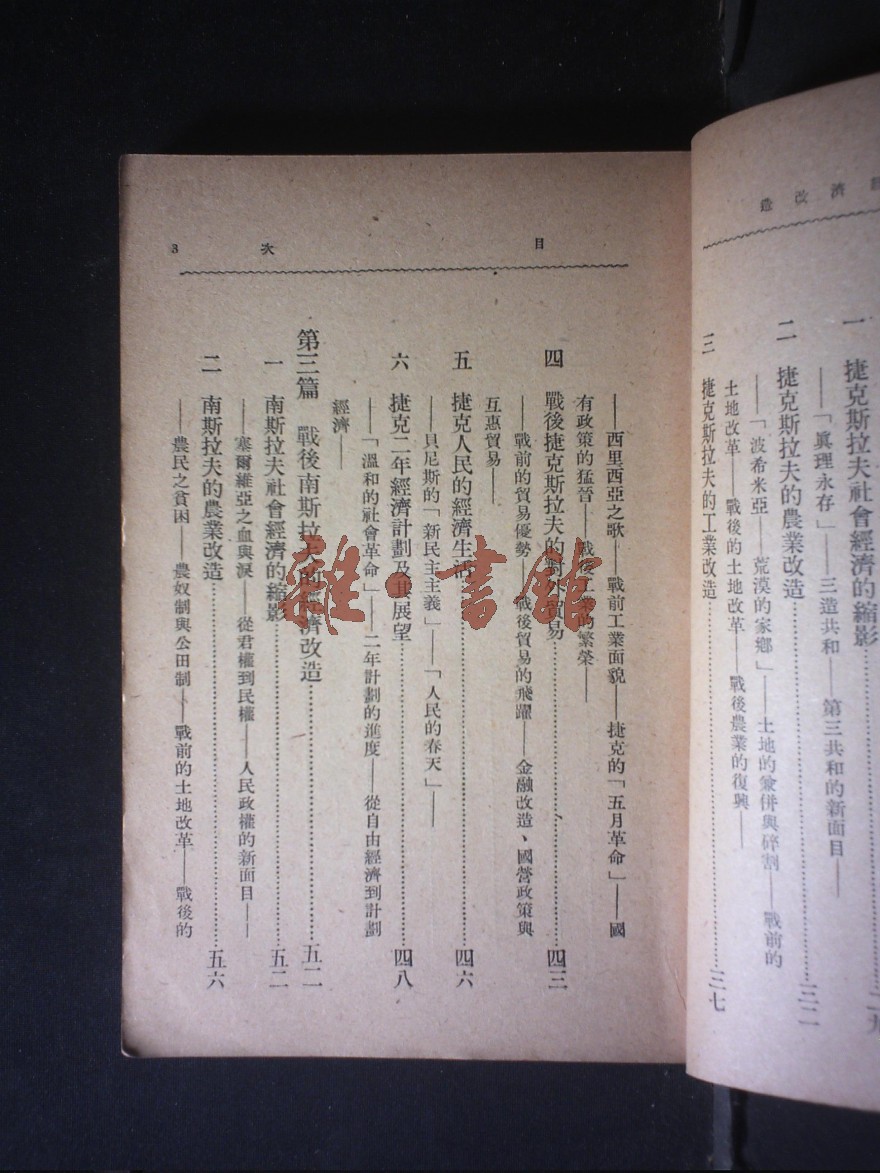 經濟改造
一 捷克斯拉夫社會經濟的縮影……二九
——「眞理永存」——三造共和——第三共和的新面目——
二 捷克斯拉夫的農業改造……三二
——「波希米亞——荒漠的家鄉」——土地的兼併與碎割——戰前的
土地改革——戰後的土地改革——戰後農業的復興——
三 捷克斯拉夫的工業改造……三七
目次 3
——西里西亞之歌——戰前工業面貌——捷克的「五月革命」——國
有政策的猛晉——戰後工業的繁榮——
四 戰後捷克斯拉夫的對外貿易……四三
——戰前的貿易優勢——戰後貿易的飛躍——金融改造、國營政策與
互惠貿易——
五 捷克人民的經濟生活……四六
——貝尼斯的「新民主主義」——「人民的春天」——
六 捷克二年經濟計劃及其展望……四八
——「溫和的社會革命」——二年計劃的進度——從自由經濟到計劃
經濟——
第三篇 戰後南斯拉夫的經濟改造……五二
一 南斯拉夫社會經濟的縮影……五二
——塞爾維亞之血與淚——從君權到民權——人民政權的新面目——
二 南斯拉夫的農業改造……五六
——農民之貧困——農奴制與公田制——戰前的土地改革——戰後的
雜·書館